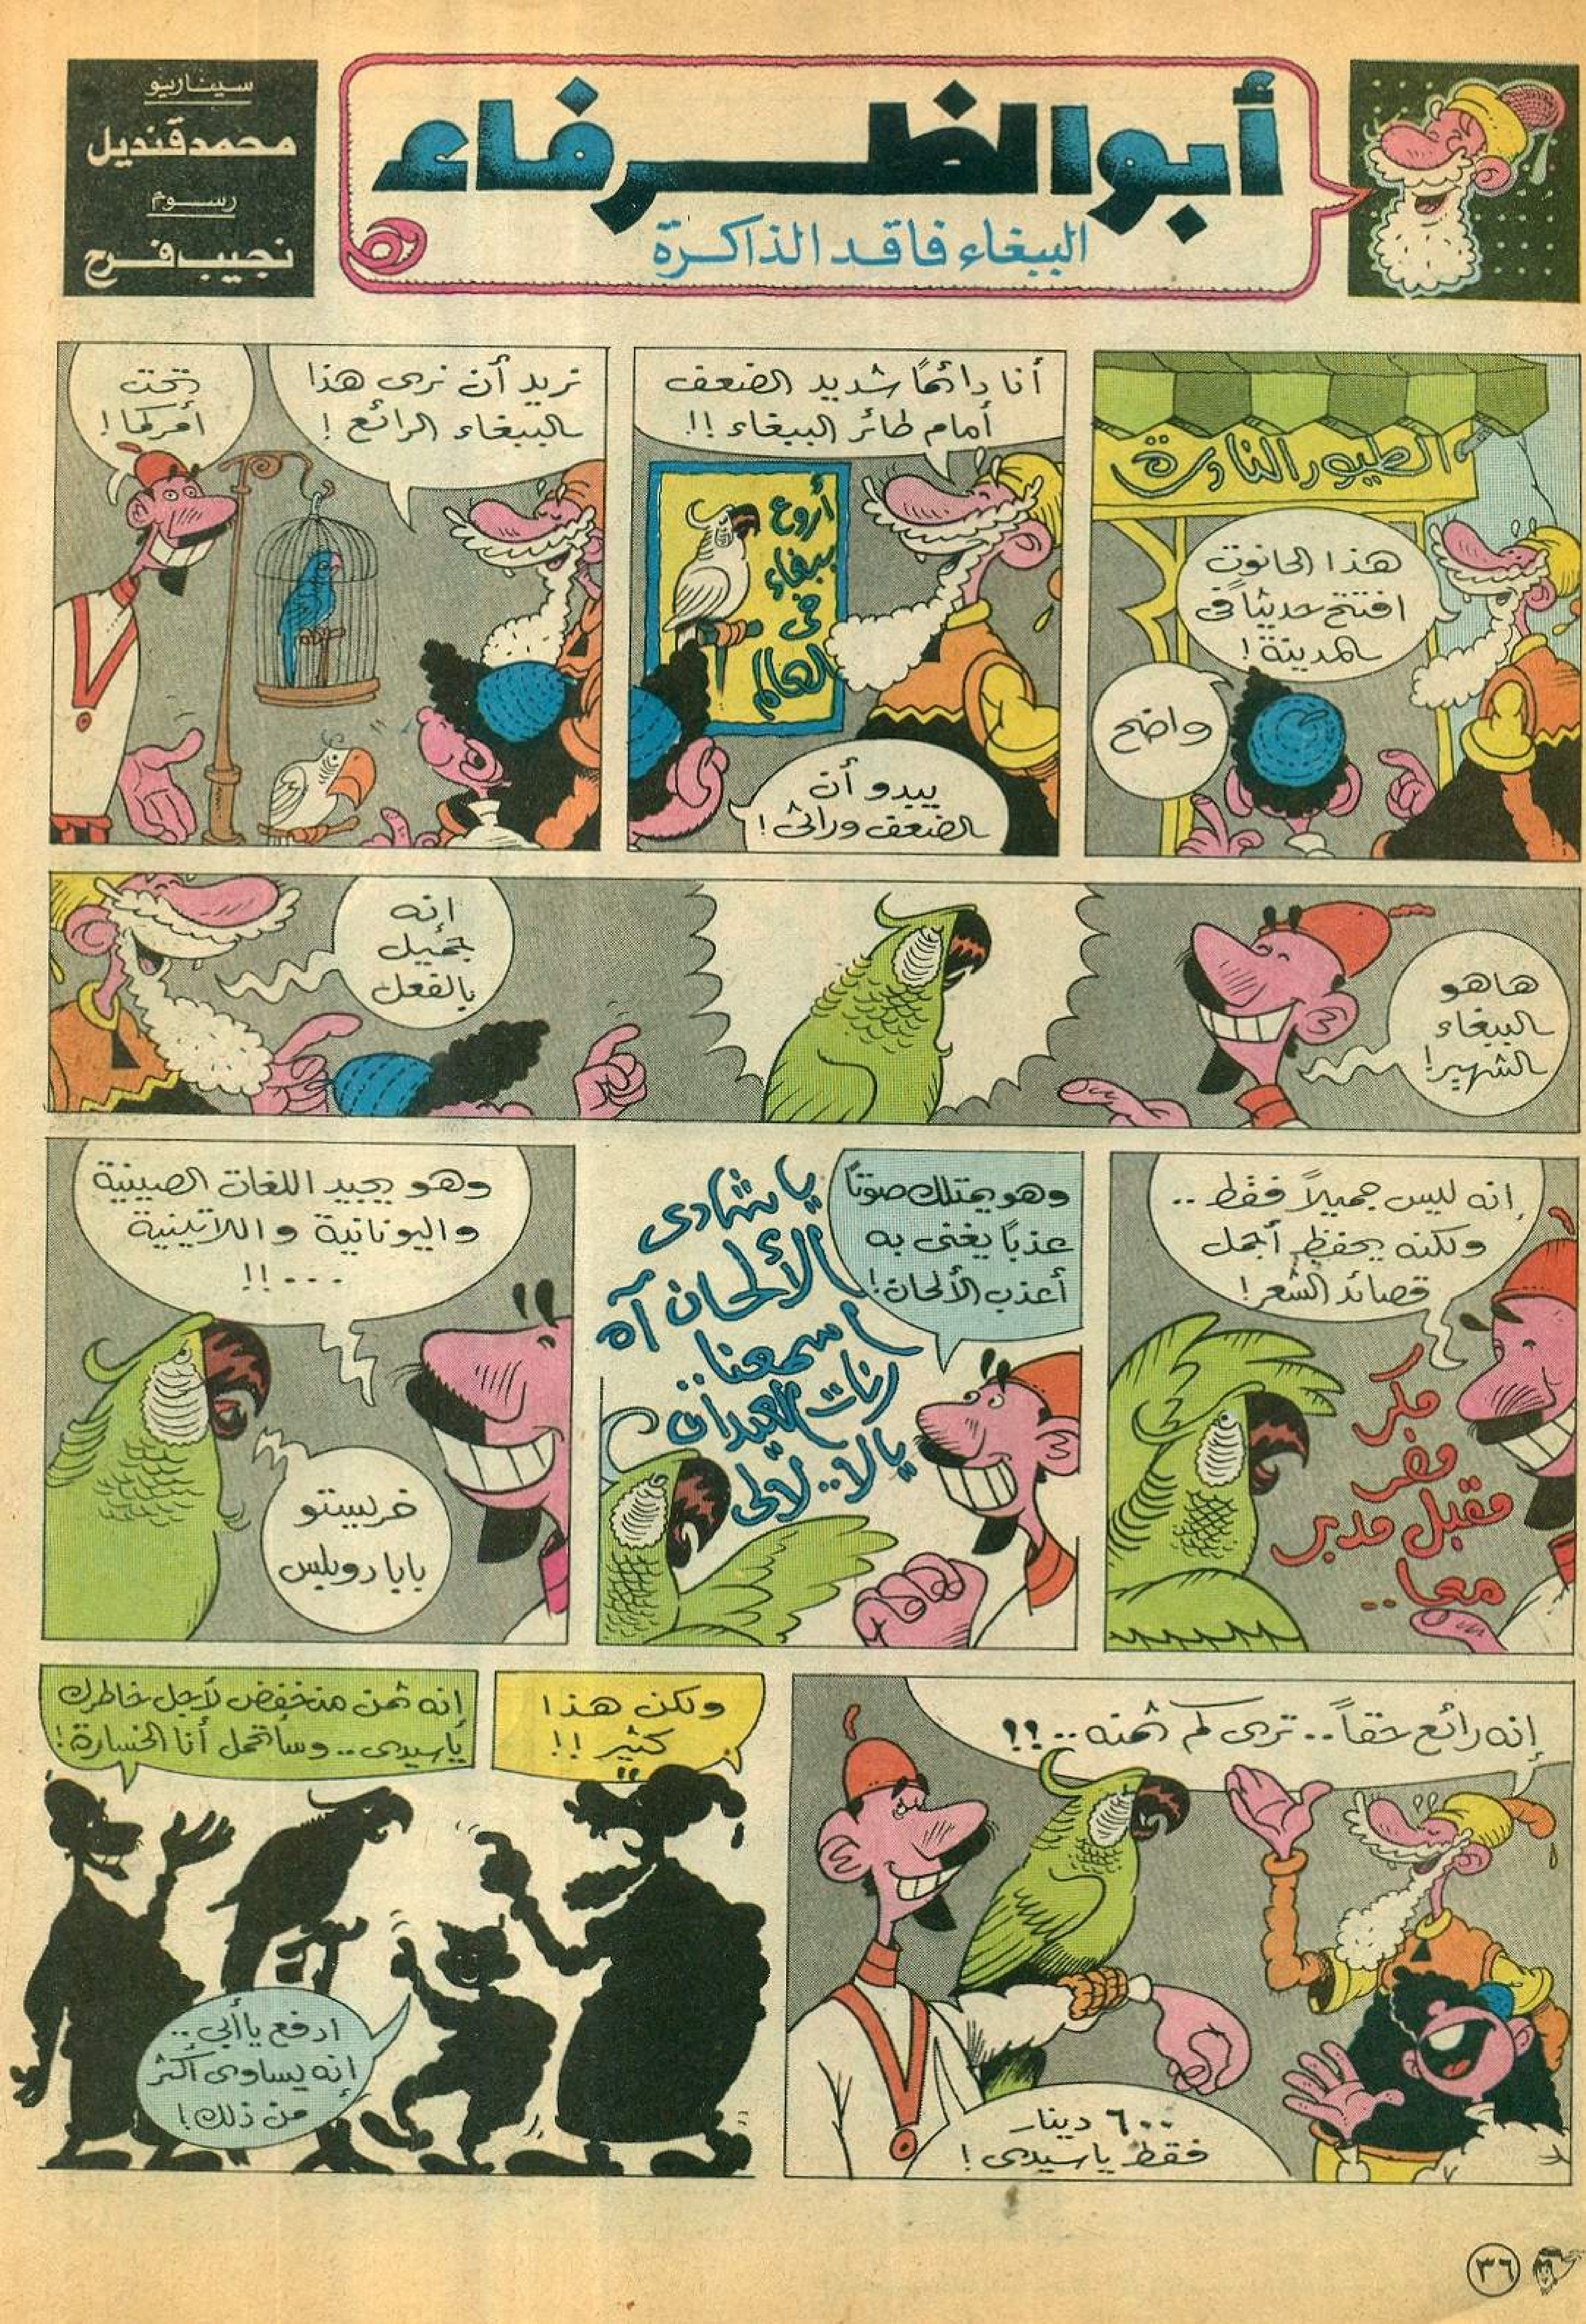 سيناريو
محمد قنديل
رسوم
نجيب فرح
أبو الظرفاء
الببغاء فاقد الذاكرة
الطيور النادرة
هذا الحانوت
افتتح حديثاً في
المدينة!
واضح
أنا دائماً شديد الضعف
أمام طائر الببغاء!!
أروع
ببغاء
في
العالم
يبدو أن
الضعف وراثى!
تريد أن ترى هذا
الببغاء الرائع!
تحت
أمركما!
هاهو
الببغاء
الشهير!
إنه
جميل
بالفعل
إنه ليس جميلاً فقط..
ولكنه يحفظ أجمل
قصائد الشعر!
مكر
مفر
مقبل مدبر
معا..
وهو يمتلك صوتاً
عذباً يغنى به
أعذب الألحان!
يا شادى
الألحان آه
اسمعنا..
رنات العيدان
يالا.. لالى
وهو يجيد اللغات الصينية
واليونانية واللاتينية
...!!
خرليبنتو
بابا دوبليس
إنه رائع حقاً.. ترى كم ثمنه..؟؟
٦٠٠ دينار
فقط يا سيدى!
ولكن هذا
كثير!!
إنه ثمن منخفض لأجل خاطرك
يا سيدى.. وسأتحمل أنا الخسارة!
ادفع يا أبي..
إنه يساوى أكثر
من ذلك!
٣٦